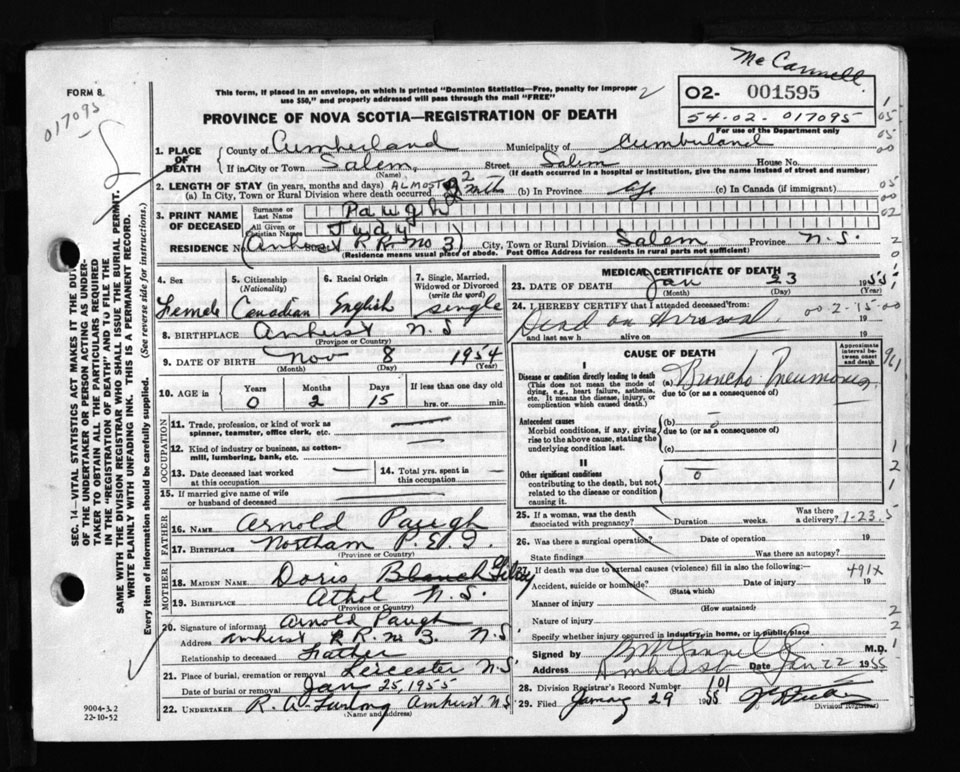 McCannell
FORM 8
This form, if placed in an envelope, on which is printed "Dominion Statistics—Free, penalty for improper use $50," and properly addressed will pass through the mail "FREE"
2
O2- 001595
54-02-017095
For use of the Department only
017095
PROVINCE OF NOVA SCOTIA—REGISTRATION OF DEATH
1. PLACE OF DEATH
County of Cumberland Municipality of Cumberland
If in City or Town Salem Street Salem House No.
(Name) (If death occurred in a hospital or institution, give the name instead of street and number)
2. LENGTH OF STAY (in years, months and days)
(a) In City, Town or Rural Division where death occurred ALMOST 2 mths (b) In Province life (c) In Canada (if immigrant)
3. PRINT NAME OF DECEASED
Surname or Last Name Paugh
All Given or Christian Names Judy
RESIDENCE No. (Amherst R R. no 3) City, Town or Rural Division Salem Province N.S.
(Residence means usual place of abode. Post Office Address for residents in rural parts not sufficient)
4. Sex Female
5. Citizenship (Nationality) Canadian
6. Racial Origin English
7. Single, Married, Widowed or Divorced (write the word) single
8. BIRTHPLACE Amherst N.S
(Province or Country)
9. DATE OF BIRTH Nov 8 1954
(Month) (Day) (Year)
10. AGE in Years 0 Months 2 Days 15 If less than one day old hrs. or min.
OCCUPATION
11. Trade, profession, or kind of work as spinner, teamster, office clerk, etc. —
12. Kind of industry or business, as cotten-mill, lumbering, bank, etc. —
13. Date deceased last worked at this occupation —
14. Total yrs. spent in this occupation —
15. If married give name of wife or husband of deceased —
FATHER
16. NAME Arnold Paugh
17. BIRTHPLACE Northam P.E.I.
(Province or Country)
MOTHER
18. MAIDEN NAME Doris Blanch
19. BIRTHPLACE Athol N.S.
(Province or Country)
20. Signature of informant Arnold Paugh
Address Amherst R R. no 3. N.S
Relationship to deceased Father
21. Place of burial, cremation or removal Leicester N.S.
Date of burial or removal Jan 25, 1955
22. UNDERTAKER R. A. Furlong Amherst N.S
(Name and address)
MEDICAL CERTIFICATE OF DEATH
23. DATE OF DEATH Jan 23 1955
(Month) (Day)
24. I HEREBY CERTIFY that I attended deceased from: 00-2-15-00
Dead on Arrival 19
and last saw h alive on 19
CAUSE OF DEATH
Approximate interval between onset and death
I
Disease or condition directly leading to death
(This does not mean the mode of dying, e.g., heart failure, asthenia, etc. It means the disease, injury, or complication which caused death.)
(a) Broncho Pneumonia
due to (or as a consequence of)
Antecedent causes
Morbid conditions, if any, giving rise to the above cause, stating the underlying condition last.
(b)
due to (or as a consequence of)
(c)
II
Other significant conditions
contributing to the death, but not related to the disease or condition causing it.
0
25. If a woman, was the death associated with pregnancy? Duration weeks. Was there a delivery? 1-23.5
26. Was there a surgical operation? Date of operation 19
State findings Was there an autopsy?
27. If death was due to external causes (violence) fill in also the following: 491X
Accident, suicide or homicide? Date of injury 19
(State which)
Manner of injury
(How sustained)
Nature of injury
Specify whether injury occurred in industry, in home, or in public place
Signed by M.D.
Address Amherst Date Jan 22 1955
28. Division Registrar's Record Number 101
29. Filed January 29 1955
Division Registrar
SEC. 14—VITAL STATISTICS ACT MAKES IT THE DUTY OF THE UNDERTAKER OR PERSON ACTING AS UNDERTAKER TO OBTAIN ALL THE PARTICULARS REQUIRED IN THE "REGISTRATION OF DEATH" AND TO FILE THE SAME WITH THE DIVISION REGISTRAR WHO SHALL ISSUE THE BURIAL PERMIT.
WRITE PLAINLY WITH UNFADING INK. THIS IS A PERMANENT RECORD.
Every item of information should be carefully supplied. (See reverse side for instructions.)
9004-3.2
22-10-52